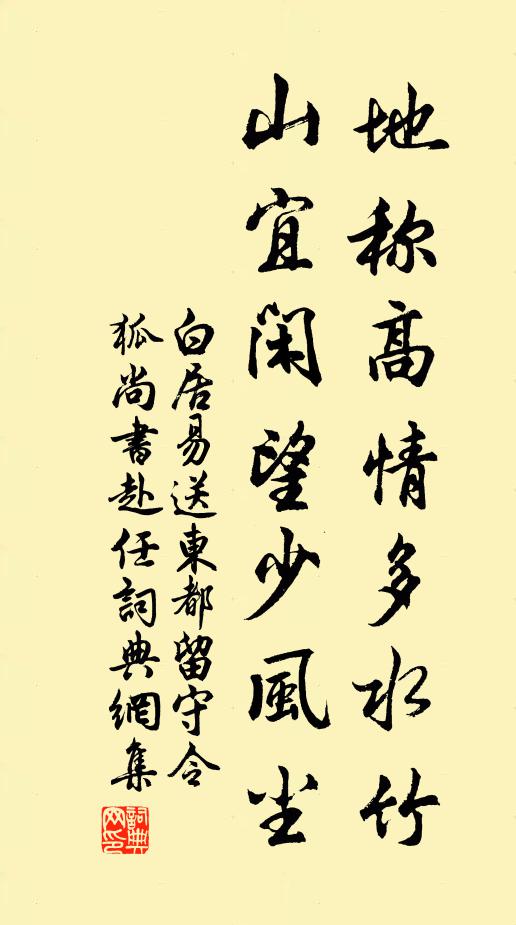 地称高情多水竹
山宜闲望少風尘
白居易送東都留守令
狐尚書赴任詞典網集
詞典
网印